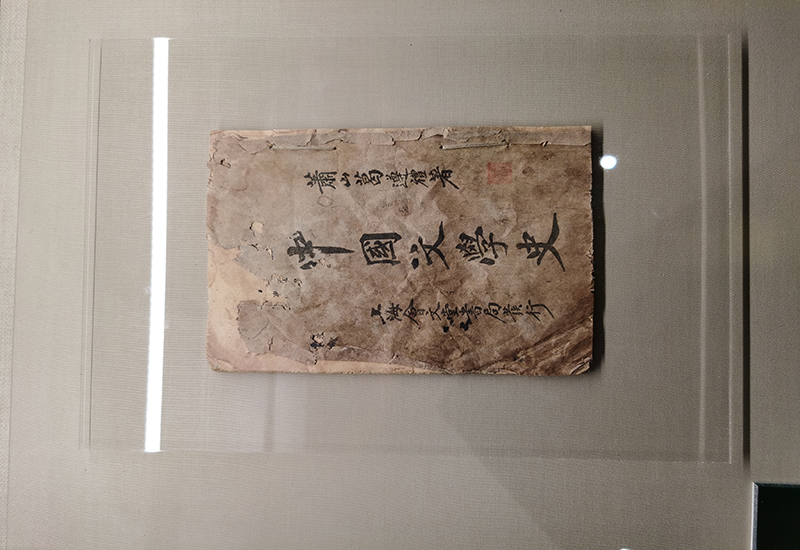 蕭山葛遵禮著
中國文學史
上海會文堂書局發行